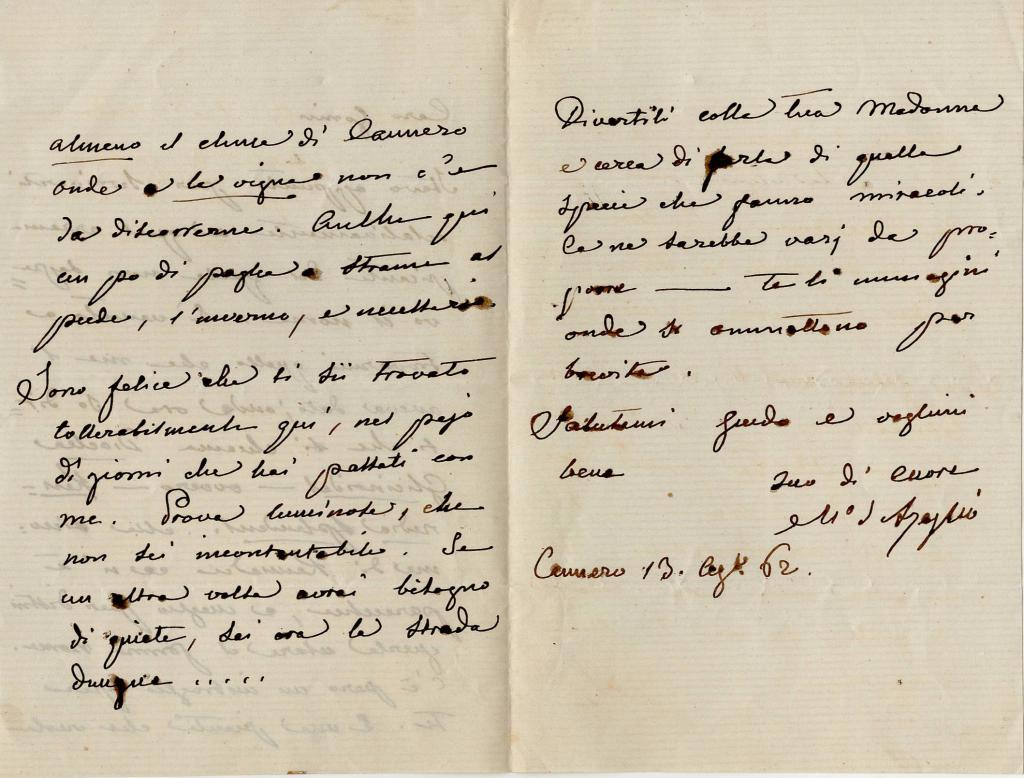 almeno il clima di Cannero
onde a la vigna non c'è
da discorrerne. Anche qui
un po di paglia o strame al
piede, l'inverno, è necessario.
Sono felice che ti sii trovato
tollerabilmente qui, nel pajo
di giorni che hai passati con
me. Prova luminosa, che
non sei incontentabile. Se
un altra volta avrai bisogno
di quiete, sai ora la strada
dunque .....
Divertiti colla tua Madonna
e cerca di farla di quelle
specie che fanno miracoli.
Ce ne sarebbe varj da pro=
porre —— te li immagini
onde si ommettono per
brevità.
Salutami Guido e vogliimi
bene
Tuo di cuore
M° d'Azeglio
Cannero 13. 62.